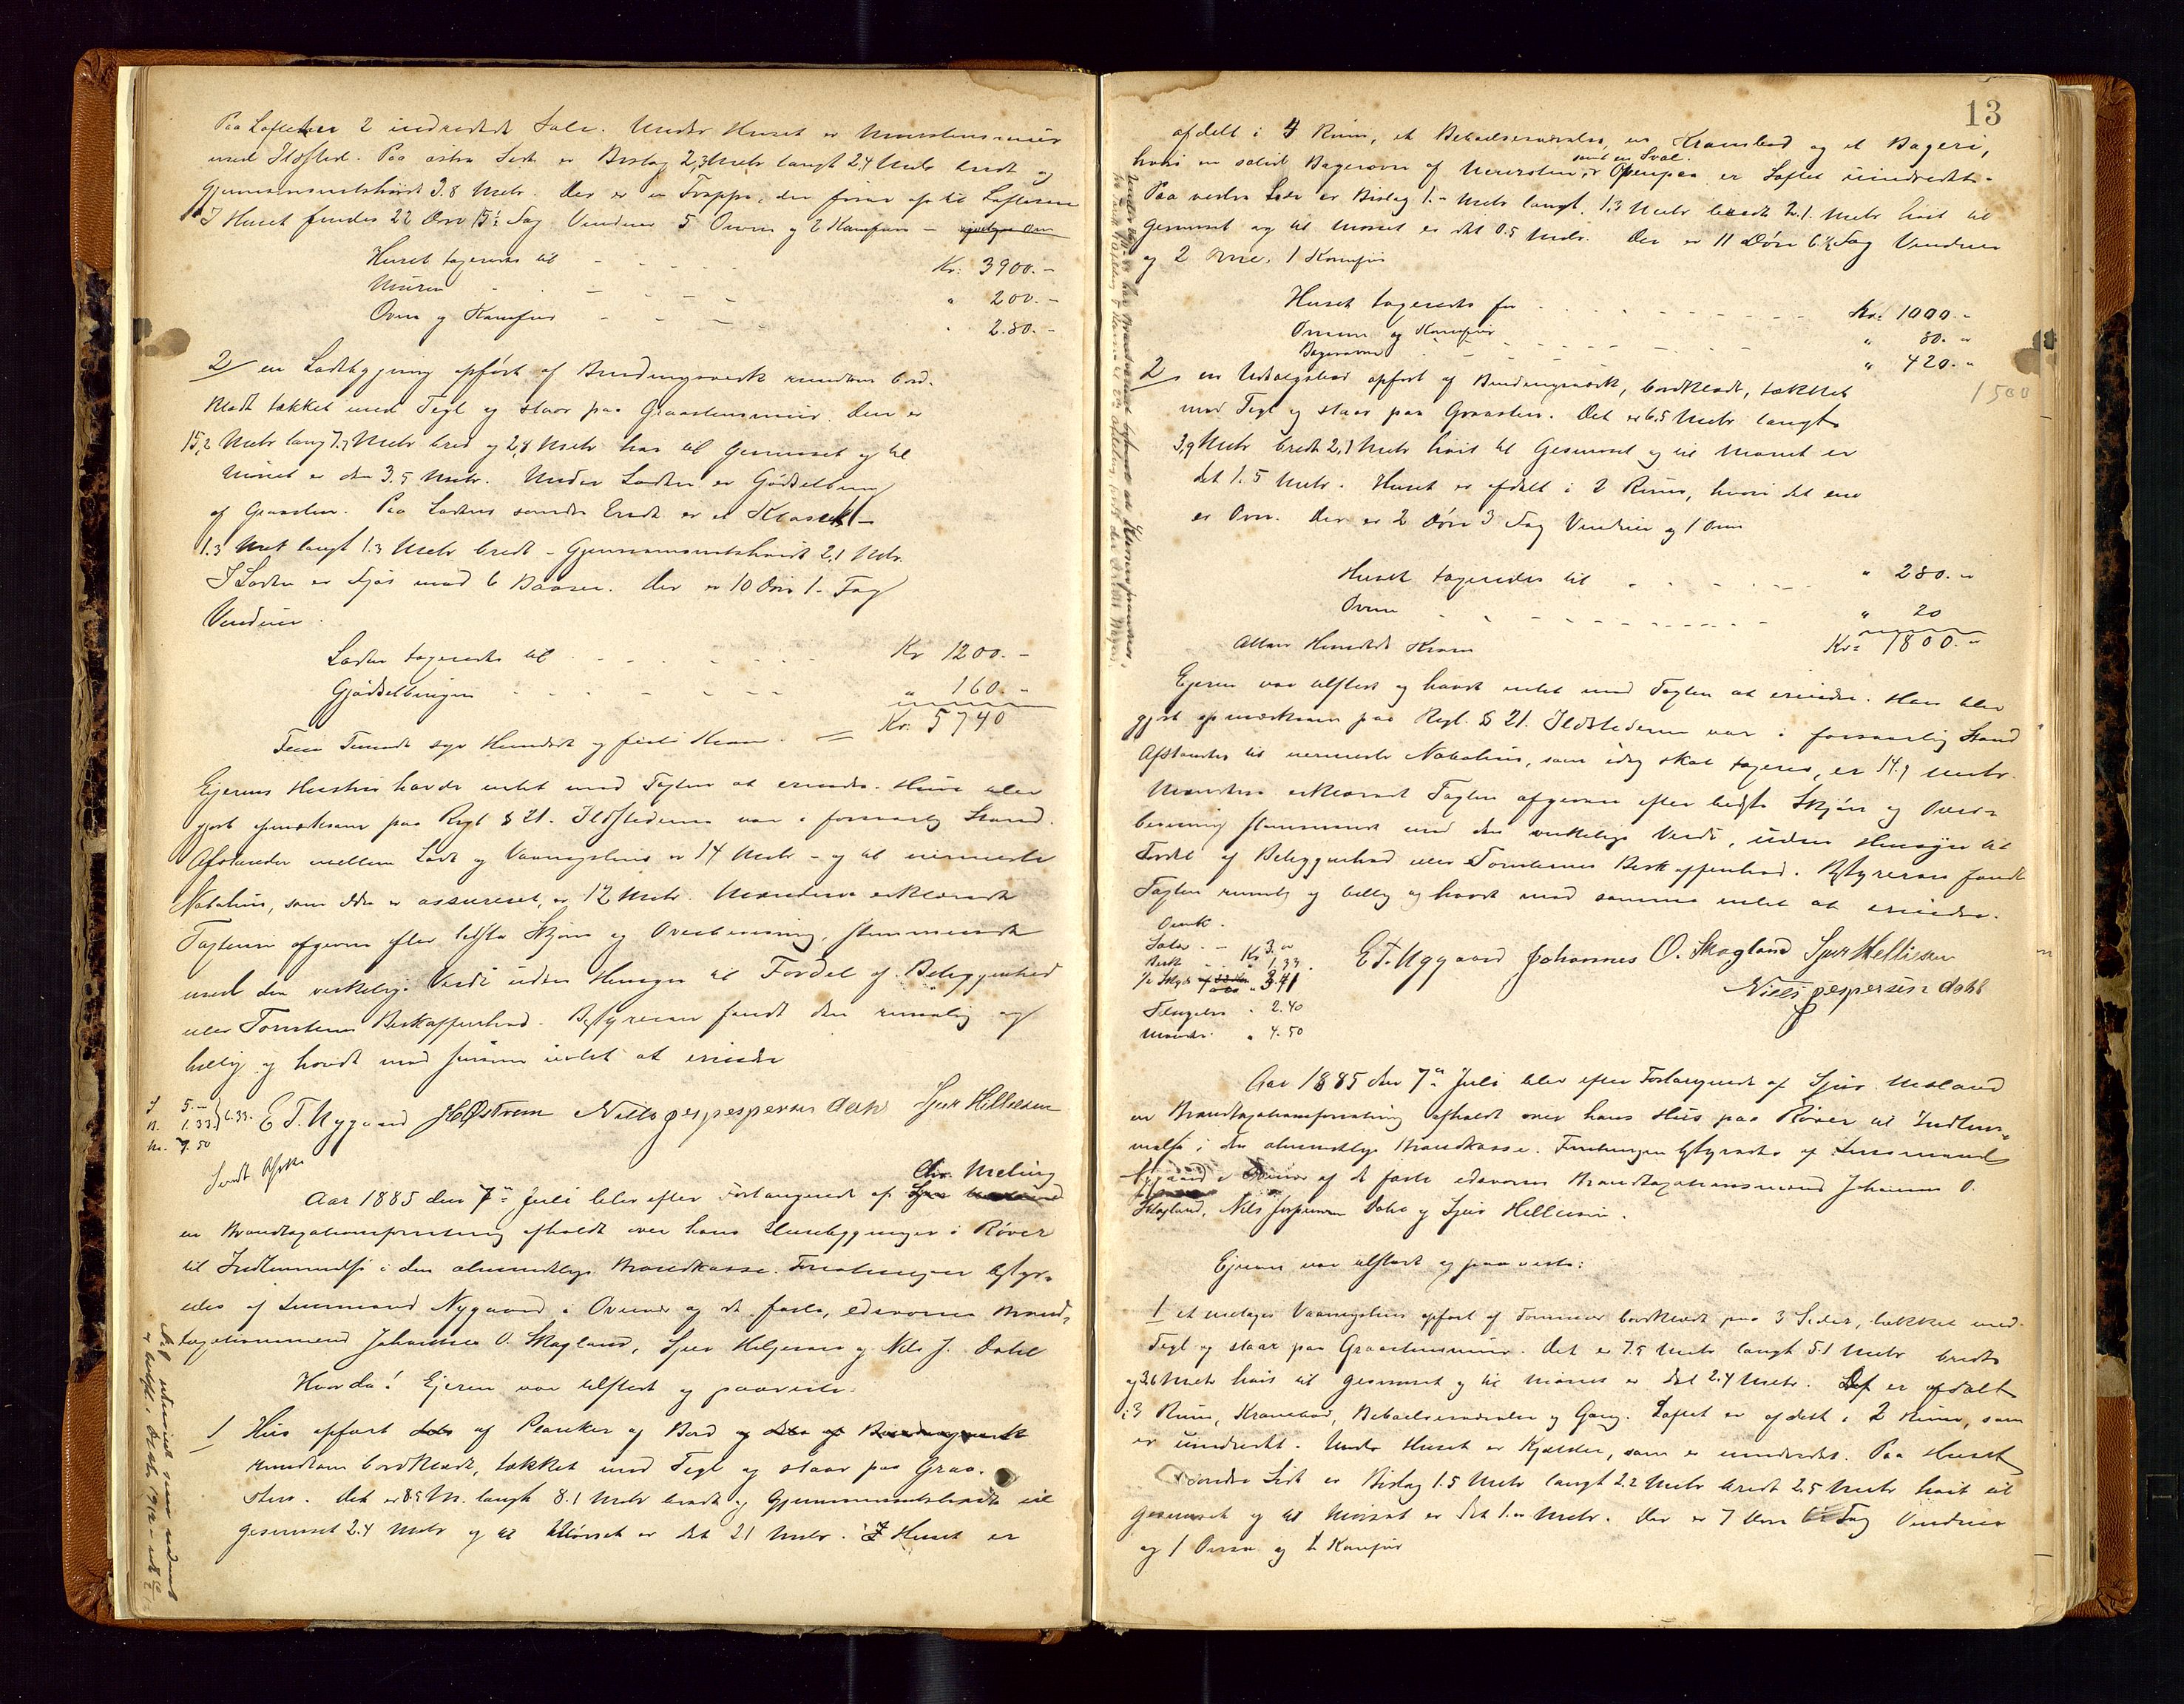 Paa Loftet er 2 indredede Sale. Under Huset er Murstensmur
med Ildsted. Paa østre Side er Bislag 2,3 Meter langt 2.4 Meter bredt og
Gjennemsnitshøide 3.8 Meter. Der er en Trappe, der fører op til Loftet
I Huset findes 22 Døre 15½ Fag Vinduer 5 Ovne og 2 Komfurer -
Huset taxeredes til Kr. 3900.-
Muren " 200.-
Ovne og Komfur " 280.-
2/ en Ladebygning opført af Bindingsverk rundtom bord-
klædt tækket med Tegl og staar paa Graastensmur. Den er
15,2 Meter lang 7,7 Meter bred og 2,8 Meter høi til Gesimset og til
Mønet er den 3.5 Meter. Under Laden er Gjødselbinge
af Graasten. Paa Ladens søndre Ende er et Kloset
1.3 Met langt 1.3 Meter bredt - Gjennemsnitshøide 2,1 Met.
I Laden er Fjøs med 6 Baaser. Der er 10 Døre 1 - Fag
Vinduer.
Laden taxeredes til Kr 1200.-
Gjødselbingen " 160.-
Fem Tusinde syv Hundrede og firti Kroner = Kr. 5740
Ejerens Hustru havde intet mod Taxten at erindre. Hun blev
gjort opmærksom paa Regl § 21. Ildstederne var i forsvarlig Stand.
Afstanden mellem Lade og Vaaningshus er 14 Meter - og til nærmeste
Nabohus, som ikke er assureret, er 12 Meter. Mændene erklærede
Taxten afgiven efter bedste Skjøn og Overbevisning, stemmende
med den virkelige Værdi uden Hensyn til Fordel af Beliggenhed
eller Tomtens Beskaffenhed. Bestyreren fandt den rimelig og
billig og havde mod samme intet at erindre
E T. Nygaard JHØstrem Niels Jespersen Dahl Sjur Hillesen
5.-
1.33 6.33.
M. 7.50
Sendt Afskr
Chr. Meling
Aar 1885 den 7de Juli blev efter Forlangende af
en Brandtaxationsforretning afholdt over hans Husebygninger i Røvær
til Indlemmelse i den almindelige Brandkasse. Forretningen bestyr-
edes af Lensmand Nygaard i Ovenor og de faste, edsvorne Brand-
taxationsmænd Johannes O. Skogland, Sjur Helgesen og Nils J. Dahl
Hvorda! Ejeren var tilstede og paaviste:
1 Hus opført af Planker og Bord
rundtom bordklædt, tækket med Tegl og staar paa Graa-
sten. Det er 8.5 M. langt 8.1 Meter bredt og Gjennemsnitshøide til
Gesimset 2.4 Meter og til Mønet er det 2.1 Meter. Huset er
13
afdelt i 4 Rum, et Beboelsesværelse, en Krambod og et Bageri,
samt en Sval.
hvori en solid Bagerovn af Mursten, Ovenpaa er Loftet uindredet.
Paa vestre Side er Bislag 1.- Meter langt, 1.3 Meter bredt 2.1. Meter høit til
Gesimset og til Mønet er det 0.5 Meter. Der er 11 Døre 6½ Fag Vinduer
og 2 Ovne, 1 Komfur
Huset taxeredes for Kr. 1000.-
Ovnene og Komfur " 80.-
Bagerovn " 420.-
1500
2 en Udsalgsbod opført af Bindingsværk, bordklædt, tækket
med Tegl og staar paa Graasten. Det er 6,5 Meter langt
3,9 Meter bredt 2,1 Meter høit til Gesimset og til Mønet er
det 1.5 Meter. Huset er afdelt i 2 Rum, hvori det ene
er Ovn. Der er 2 Døre 3 Fag Vinduer og 1 Ovn
Huset taxeredes til " 280.-
Ovnen " 20
Atten Hundrede Kroner Kr. 1800.-
Ejeren var tilstede og havde intet mod Taxten at erindre. Han blev
gjort opmærksom paa Regl. § 21. Ildstederne var i forsvarlig Stand
Afstanden til nærmeste Nabohus, som idag skal taxeres, er 14.1 Meter.
Mændene erklærede Taxten afgiven efter bedste Skjøn og Over-
bevisning stemmende med den virkelige Værdi, uden Hensyn til
Fordel af Beliggenhed eller Tomternes Beskaffenhed. Bestyreren fandt
Taxten rimelig og billig og havde mod samme intet at erindre.
Omk.
Salær - Kr 3.-
" 1,33.
" 3.41
" 2.40
Mænd. " 4.50
E T. Nygaard Johannes O. Skogland Sjur Hellisen
Niels Jespersen Dahl
Aar 1885 den 7de Juli blev efter Forlangende af Sjur Mæland
en Brandtaxationsforretning afholdt over hans Hus paa Røvær til Indlem-
melse i den almindelige Brandkasse. Forretningen bestyredes af Lensmand
Nygaard i Ovenor af de faste edsvorne Brandtaxationsmænd Johannes O.
Skogland, Niels Jespersen Dahl og Sjur Hellesen.
Ejeren var tilstede og paaviste:
1 et enetages Vaaningshus opført af Tømmer bordklædt paa 3 Sider, tækket med
Tegl og staar paa Graastensmur. Det er 7.5 Meter langt 5.1 Meter bredt
og 2.6 Meter høit til Gesimset og til Mønet er det 2.4 Meter. Det er afdelt
i 3 Rum, Krambod, Beboelsesværelse og Gang. Loftet er afdelt i 2 Rum, som
er uindredet. Under Huset er Kjælder, som er uindredet. Paa Husets
søndre Side er Bislag 1.5 Meter langt 2.2 Meter bredt 2.5 Meter høit til
Gesimset og til Mønet er det 1.- Meter. Der er 7 Døre 6½ Fag Vinduer
og 1 Ovn og 1 Komfur